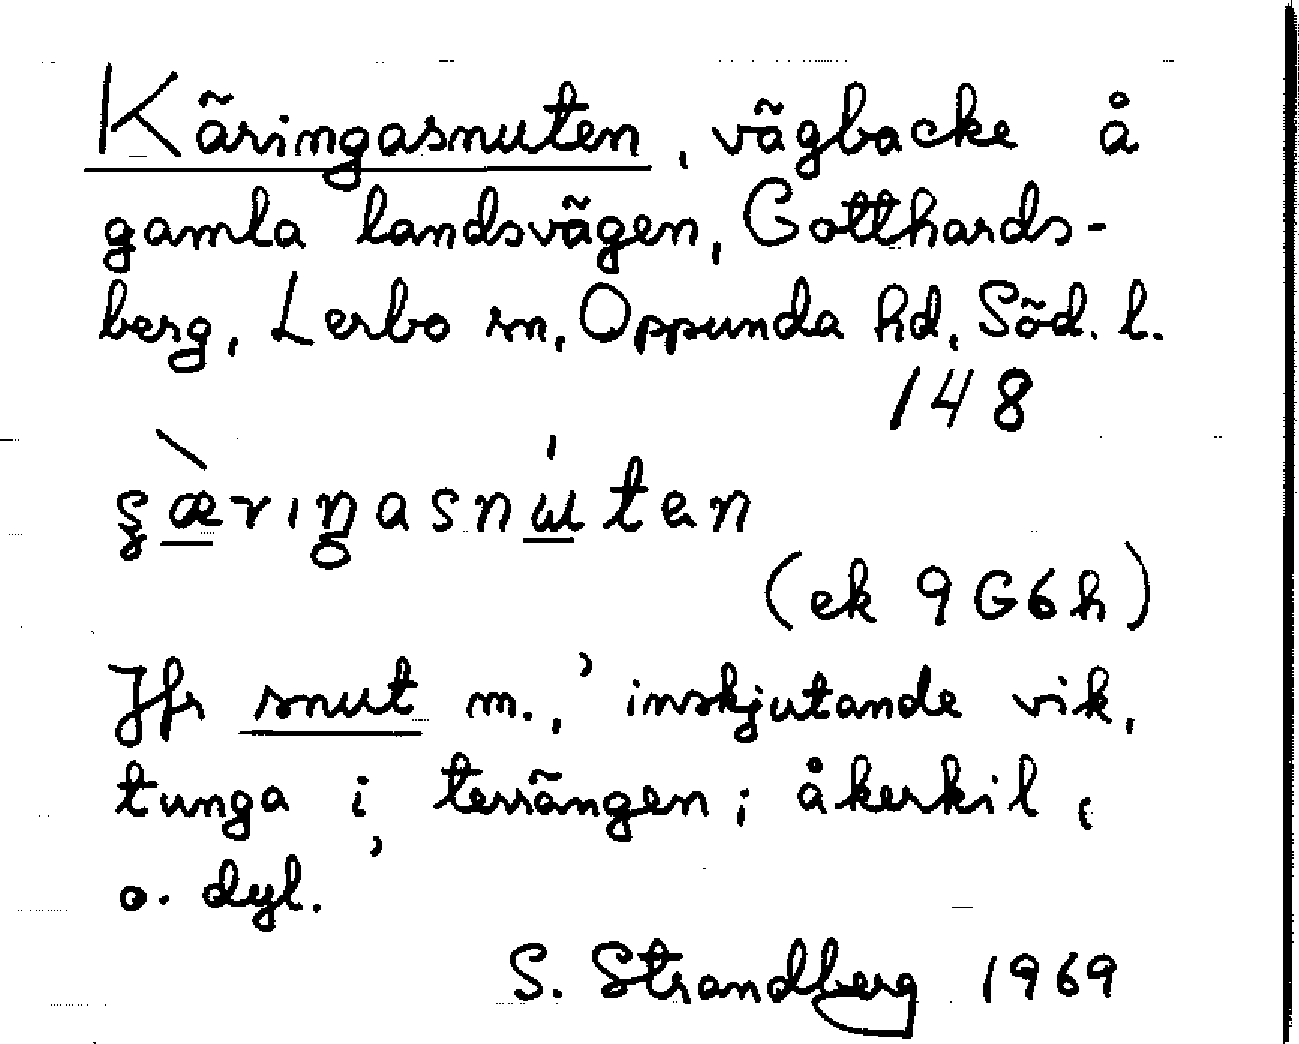 Käringasnuten, vägbacke å
gamla landsvägen, Gotthards-
berg, Lerbo sn, Oppunda hd, Söd. l.
148
ʂæ̀riŋasnɯ́tən
(ek 9G6h)
Jfr snut m., ’inskjutande vik,
tunga i terrängen; åkerkil,’
o. dyl.
S. Strandberg 1969